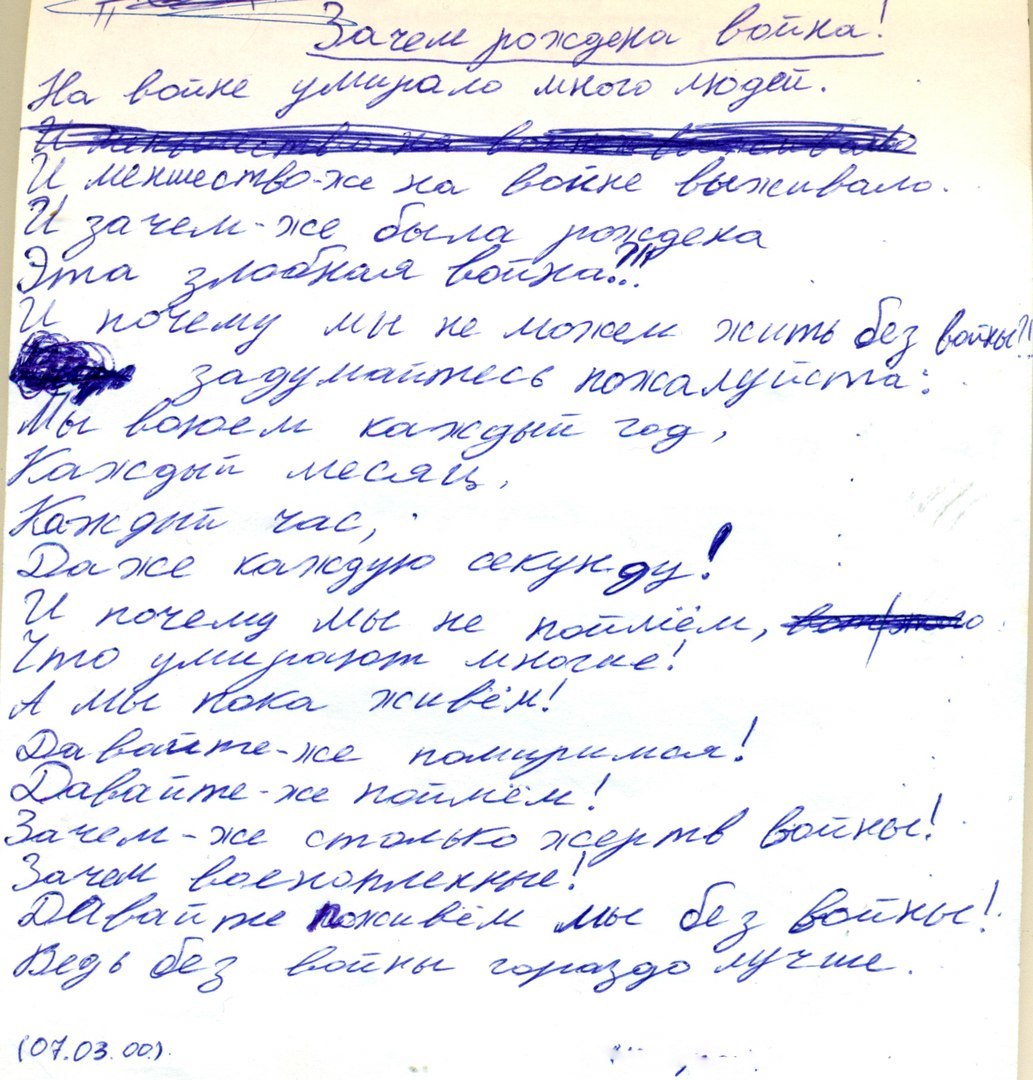 Зачем рождена война!
На войне умирало много людей.
И меншество-же на войне выживало.
И зачем-же была рождена
Эта злобная война?!!
И почему мы не можем жить без войны?!
задумайтесь пожалуйста:
Мы воюем каждый год,
Каждый месяц,
Каждый час,
Даже каждую секунду!
И почему мы не поймём,
Что умирают многие!
А мы пока живём!
Давайте-же помиримся!
Давайте-же поймём!
Зачем-же столько жертв войны!
Зачем военопленные!
Давайте поживём мы без войны!
Ведь без войны гораздо лучше.
(07.03.00.)